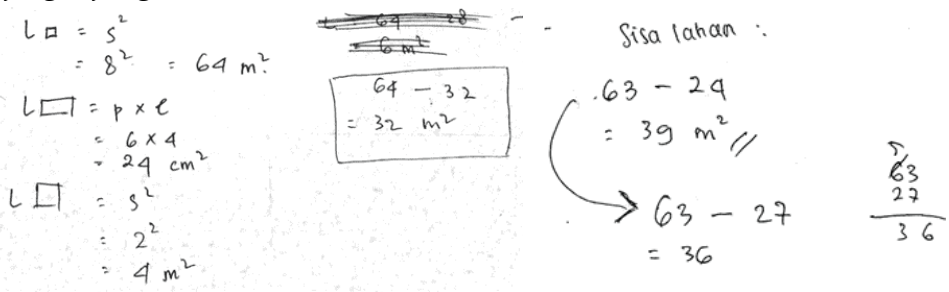 L □ = s²
= 8² = 64 m².
L ▭ = p × l
= 6 × 4
= 24 cm²
L □ = s²
= 2²
= 4 m²
64 28
6 m²
64 - 32
= 32 m²
Sisa lahan :
63 - 24
= 39 m² //
63 - 27
= 36
63
27
36